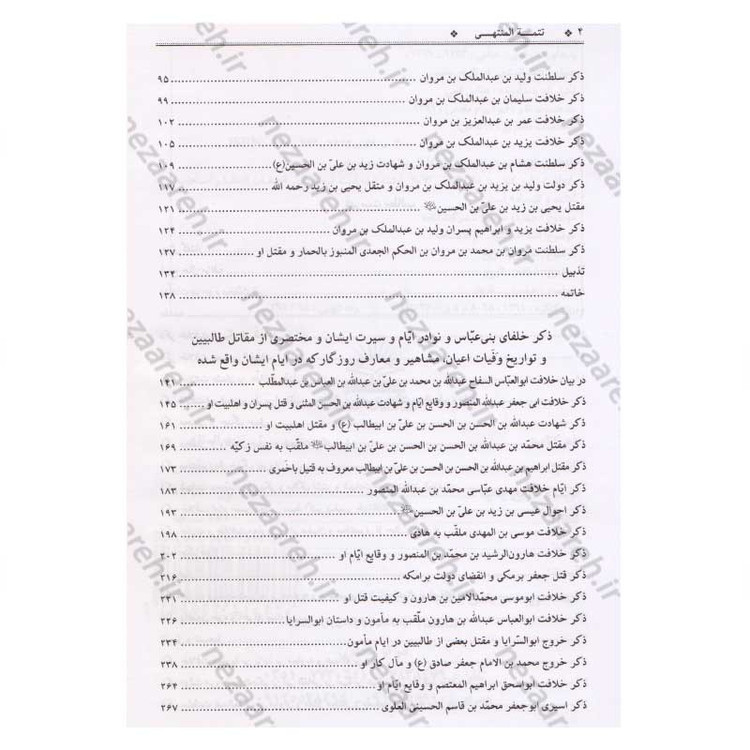 ۴ ❖ تتمـــة المنتهـــی ❖
ذکر سلطنت ولید بن عبدالملک بن مروان ........ ۹۵
ذکر خلافت سلیمان بن عبدالملک بن مروان ........ ۹۹
ذکر خلافت عمر بن عبدالعزیز بن مروان ........ ۱۰۲
ذکر خلافت یزید بن عبدالملک بن مروان ........ ۱۰۵
ذکر سلطنت هشام بن عبدالملک بن مروان و شهادت زید بن علیّ بن الحسین(ع) ........ ۱۰۹
ذکر دولت ولید بن یزید بن عبدالملک بن مروان و متقل یحیی بن زید رحمه الله ........ ۱۱۷
مقتل یحیی بن زید بن علیّ بن الحسین ........ ۱۲۱
ذکر خلافت یزید و ابراهیم پسران ولید بن عبدالملک بن مروان ........ ۱۲۴
ذکر سلطنت مروان بن محمد بن مروان بن الحکم الجعدی المنبوز بالحمار و مقتل او ........ ۱۲۷
تذییل ........ ۱۳۴
خاتمه ........ ۱۳۸
ذکر خلفای بنی‌عبّاس و نوادر ایّام و سیرت ایشان و مختصری از مقاتل طالبیین
و تواریخ وفَیات اعیان، مشاهیر و معارف روزگار که در ایام ایشان واقع شده
در بیان خلافت ابوالعبّاس السفاح عبدالله بن محمد بن علیّ بن عبدالله بن العباس بن عبدالمطّلب ........ ۱۴۱
ذکر خلافت ابی جعفر عبدالله المنصور و وقایع ایّام و شهادت عبدالله بن الحسن المثنی و قتل پسران و اهلبیت او ........ ۱۴۵
ذکر شهادت عبدالله بن الحسن بن الحسن بن علیّ بن ابیطالب (ع) و مقتل اهلبیت او ........ ۱۶۱
ذکر مقتل محمّد بن عبدالله بن الحسن بن الحسن بن علیّ بن ابیطالب ملقّب به نفس زکیّه ........ ۱۶۹
ذکر مقتل ابراهیم بن عبدالله بن الحسن بن الحسن بن علیّ بن ابیطالب معروف به قتیل باخمری ........ ۱۷۳
ذکر ایّام خلافت مهدی عبّاسی محمّد بن عبدالله المنصور ........ ۱۸۳
ذکر احوال عیسی بن زید بن علیّ بن الحسین ........ ۱۹۳
ذکر خلافت موسی بن المهدی ملقّب به هادی ........ ۱۹۸
ذکر خلافت هارون‌الرشید بن محمّد بن المنصور و وقایع ایّام او ........ ۲۰۲
ذکر قتل جعفر برمکی و انقضای دولت برامکه ........ ۲۱۶
ذکر خلافت ابوموسی محمّدالامین بن هارون و کیفیت قتل او ........ ۲۲۱
ذکر خلافت ابوالعباس عبدالله بن هارون ملقّب به مأمون و داستان ابوالسرایا ........ ۲۲۶
ذکر خروج ابوالسّرایا و مقتل بعضی از طالبیین در ایام مأمون ........ ۲۳۴
ذکر خروج محمد بن الامام جعفر صادق (ع) و مآل کار او ........ ۲۳۸
ذکر خلافت ابواسحق ابراهیم المعتصم و وقایع ایّام او ........ ۲۶۴
ذکر اسیری ابوجعفر محمّد بن قاسم الحسینی العلوی ........ ۲۶۷
nezaareh.ir